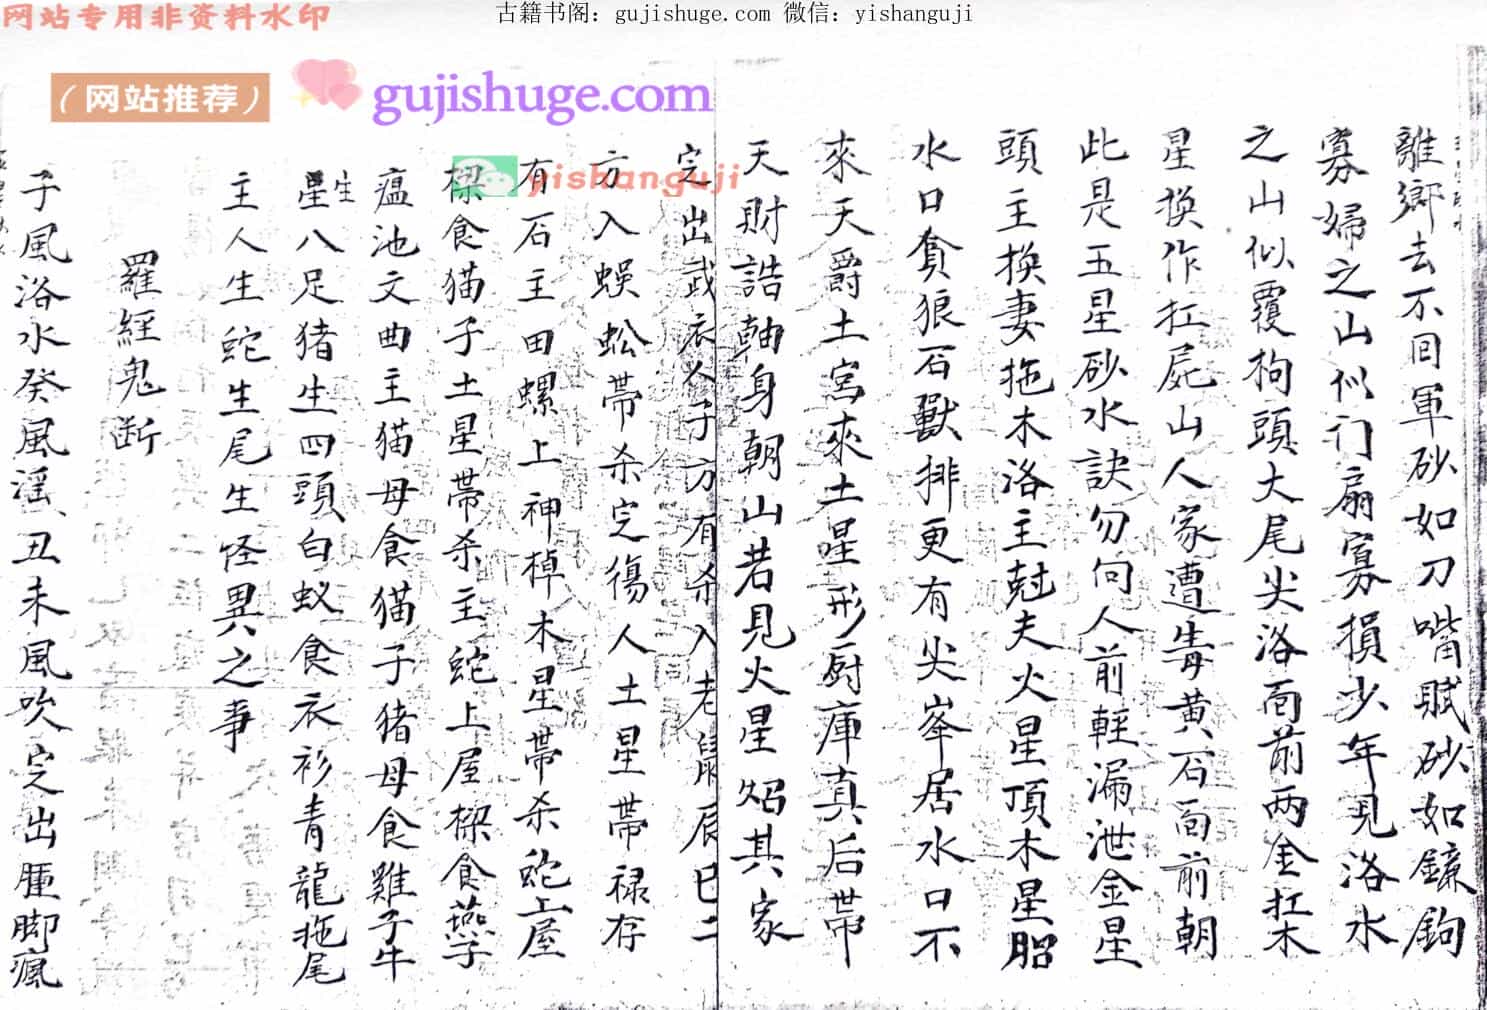 古籍书阁：gujishuge.com 微信：yishanguji
网站专用非资料水印
（网站推荐）
gujishuge.com
yishanguji
離鄉去不回軍砂如刀嘴賦砂如鐮鉤
寡婦之山似门扇寡損少年見洛水
之山似覆枸頭大尾尖洛面前两金扛木
星换作扛屍山人家遭毒黄石面前朝
此是五星砂水訣勿向人前輕漏泄金星
頭主换妻拖木洛主尅夫火星頂木星腽
水口貪狼石獸排更有尖峯居水口不
來天爵土宮來土星形厨庫真后带
天財誥軸身朝山若見火星焰其家
定出武衣人子方有杀入老鼠辰巳二
方入蜈蚣帶杀定傷人土星帶禄存
有石主田螺上神棹木星帶杀蛇上屋
樑食猫子土星帶杀主蛇上屋樑食燕子
瘟池文曲主猫母食猫子猪母食雞子牛
生星八足猪生四頭白蚁食衣衫青龍拖尾
主人生蛇生尾生怪異之事
羅經鬼断
子風洛水癸風滛丑未風吹定出腫脚瘋